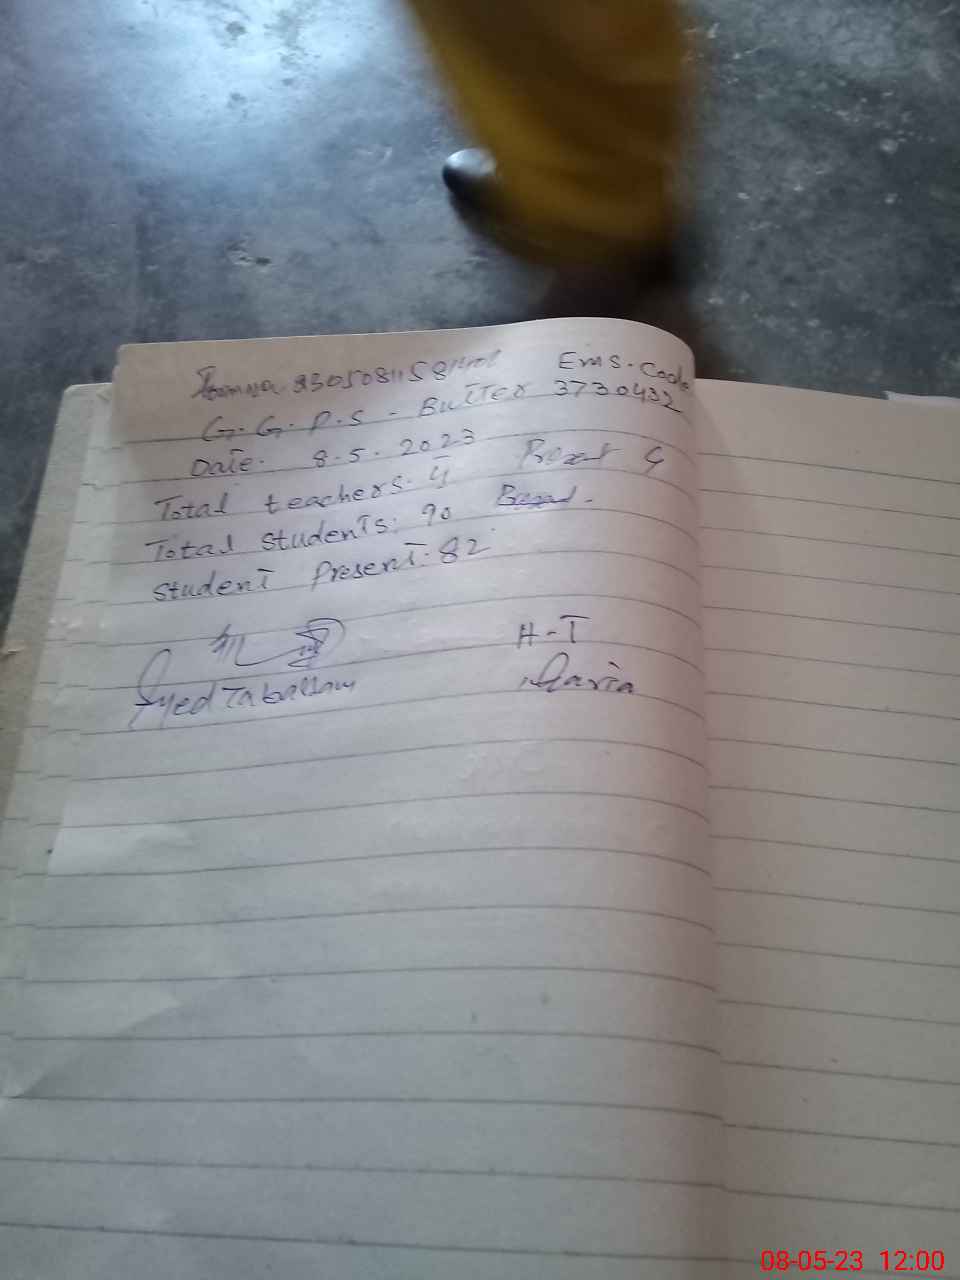 Ems. Code
G. G. P. S - Butter 3730432
Date. 8. 5. 2023
Total teachers. 4 Present 4
Total students: 90
Student Present. 82
H-T
Syed Tabassam Maria
08-05-23 12:00